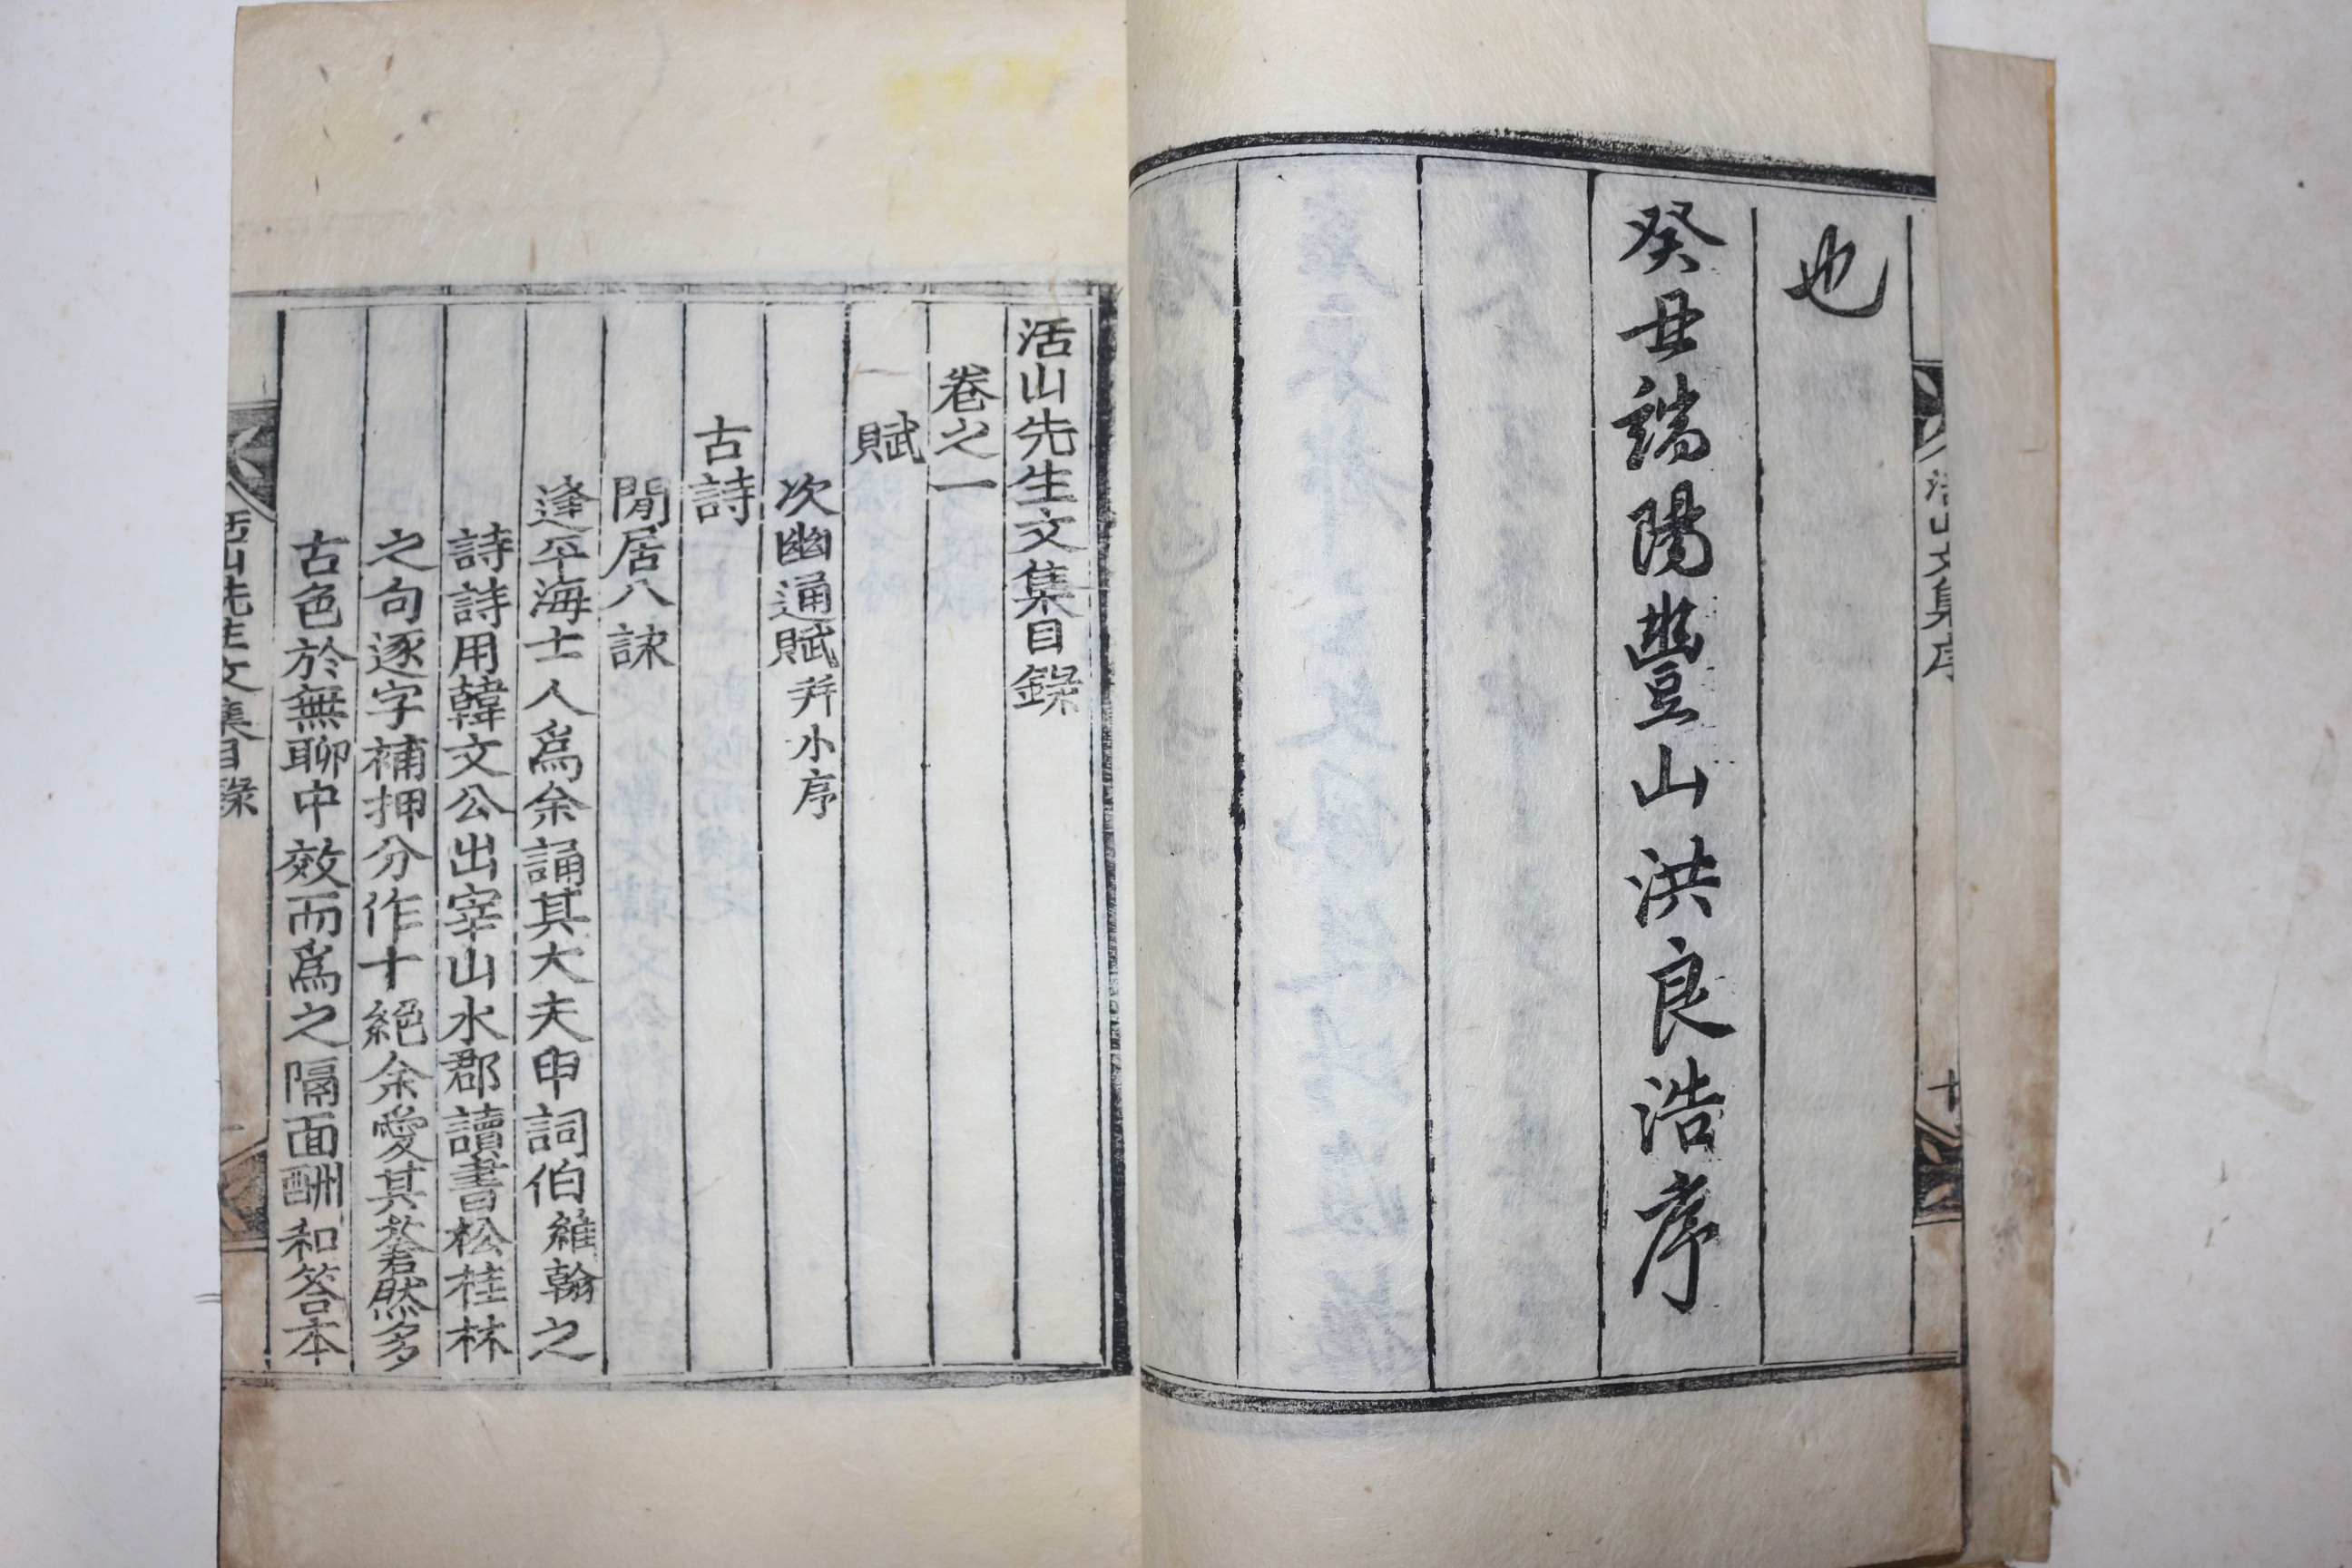 也
癸丑端陽豊山洪良浩序
活山先生文集目錄
卷之一
賦
次幽通賦 并小序
古詩
閒居八詠
逢平海士人爲余誦其大夫申詞伯維翰之
詩詩用韓文公出宰山水郡讀書松桂林
之句逐字補押分作十絕余愛其蒼然多
古色於無聊中效而爲之隔面酬和答本
活山先生文集目錄
活山文集序